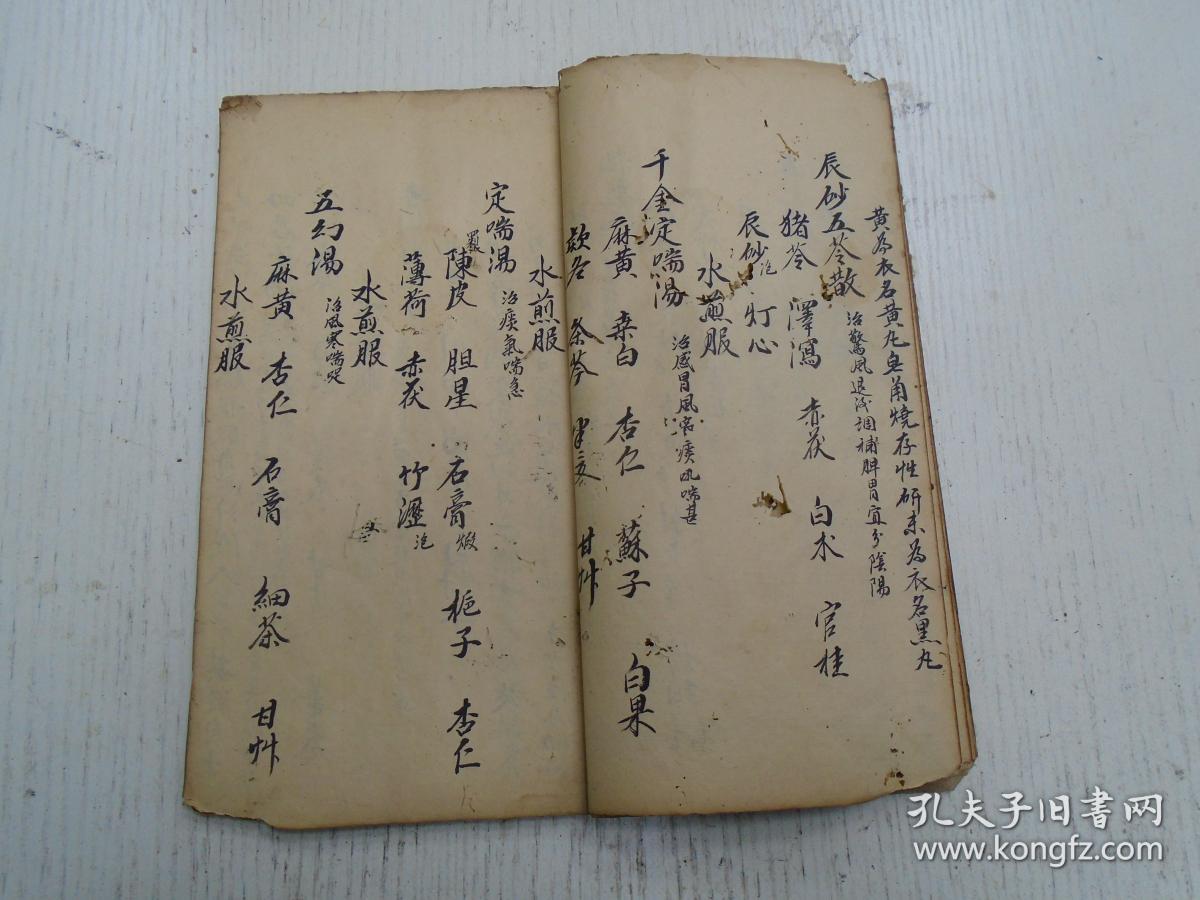 黄為衣名黄丸皂角燒存性研末為衣名黑丸
辰砂五苓散 治驚風退後調補脾胃宜分陰陽
猪苓 澤瀉 赤茯 白术 官桂
辰砂 灯心
水煎服
千金定喘湯 治感冒風寒痰吼喘甚
麻黄 桑白 杏仁 蘇子 白果
款冬 条芩 半夏 甘艸
水煎服
定喘湯 治痰氣喘急
陳皮 胆星 石膏煅 栀子 杏仁
薄荷 赤茯 竹瀝
水煎服
五幻湯 治風寒喘促
麻黄 杏仁 石膏 細茶 甘艸
水煎服
孔夫子旧书网
www.kongfz.com